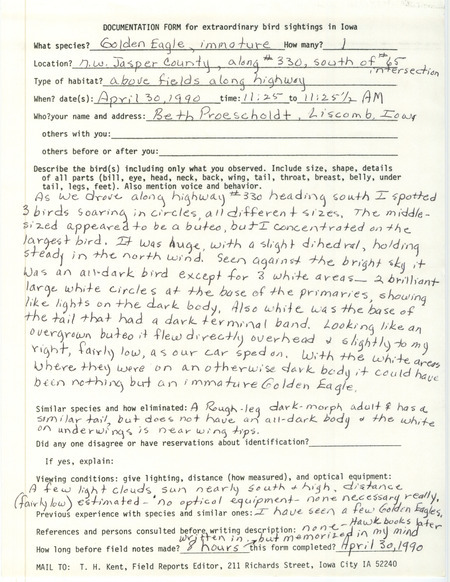 DOCUMENTATION FORM for extraordinary bird sightings in Iowa
What species? Golden Eagle, immature How many? 1
Location? N.W. Jasper County, along #330, south of #65 intersection
Type of habitat? above fields along highway
When? date(s): April 30, 1990 time: 11:25 to 11:25½ AM
Who? your name and address: Beth Proescholdt, Liscomb, Iowa
others with you:
others before or after you:
Describe the bird(s) including only what you observed. Include size, shape, details
of all parts (bill, eye, head, neck, back, wing, tail, throat, breast, belly, under
tail, legs, feet). Also mention voice and behavior.
As we drove along highway #330 heading south I spotted
3 birds soaring in circles, all different sizes. The middle-
sized appeared to be a buteo, but I concentrated on the
largest bird. It was huge, with a slight dihedral, holding
steady in the north wind. Seen against the bright sky it
was an all-dark bird except for 3 white areas— 2 brilliant
large white circles at the base of the primaries, showing
like lights on the dark body. Also white was the base of
the tail that had a dark terminal band. Looking like an
overgrown buteo it flew directly overhead & slightly to my
right, fairly low, as our car sped on. With the white areas
where they were on an otherwise dark body it could have
been nothing but an immature Golden Eagle.
Similar species and how eliminated: A Rough-leg dark-morph adult & has a
similar tail, but does not have an all-dark body & the white
on underwings is near wing tips.
Did any one disagree or have reservations about identification?
If yes, explain:
Viewing conditions: give lighting, distance (how measured), and optical equipment:
A few light clouds, sun nearly south & high, distance
(fairly low) estimated- no optical equipment- none necessary really.
Previous experience with species and similar ones: I have seen a few Golden Eagles.
References and persons consulted before writing description: none- Hawk books later
written in, but memorized in my mind
How long before field notes made? 8 hours this form completed? April 30, 1990
MAIL TO: T. H. Kent, Field Reports Editor, 211 Richards Street, Iowa City IA 52240